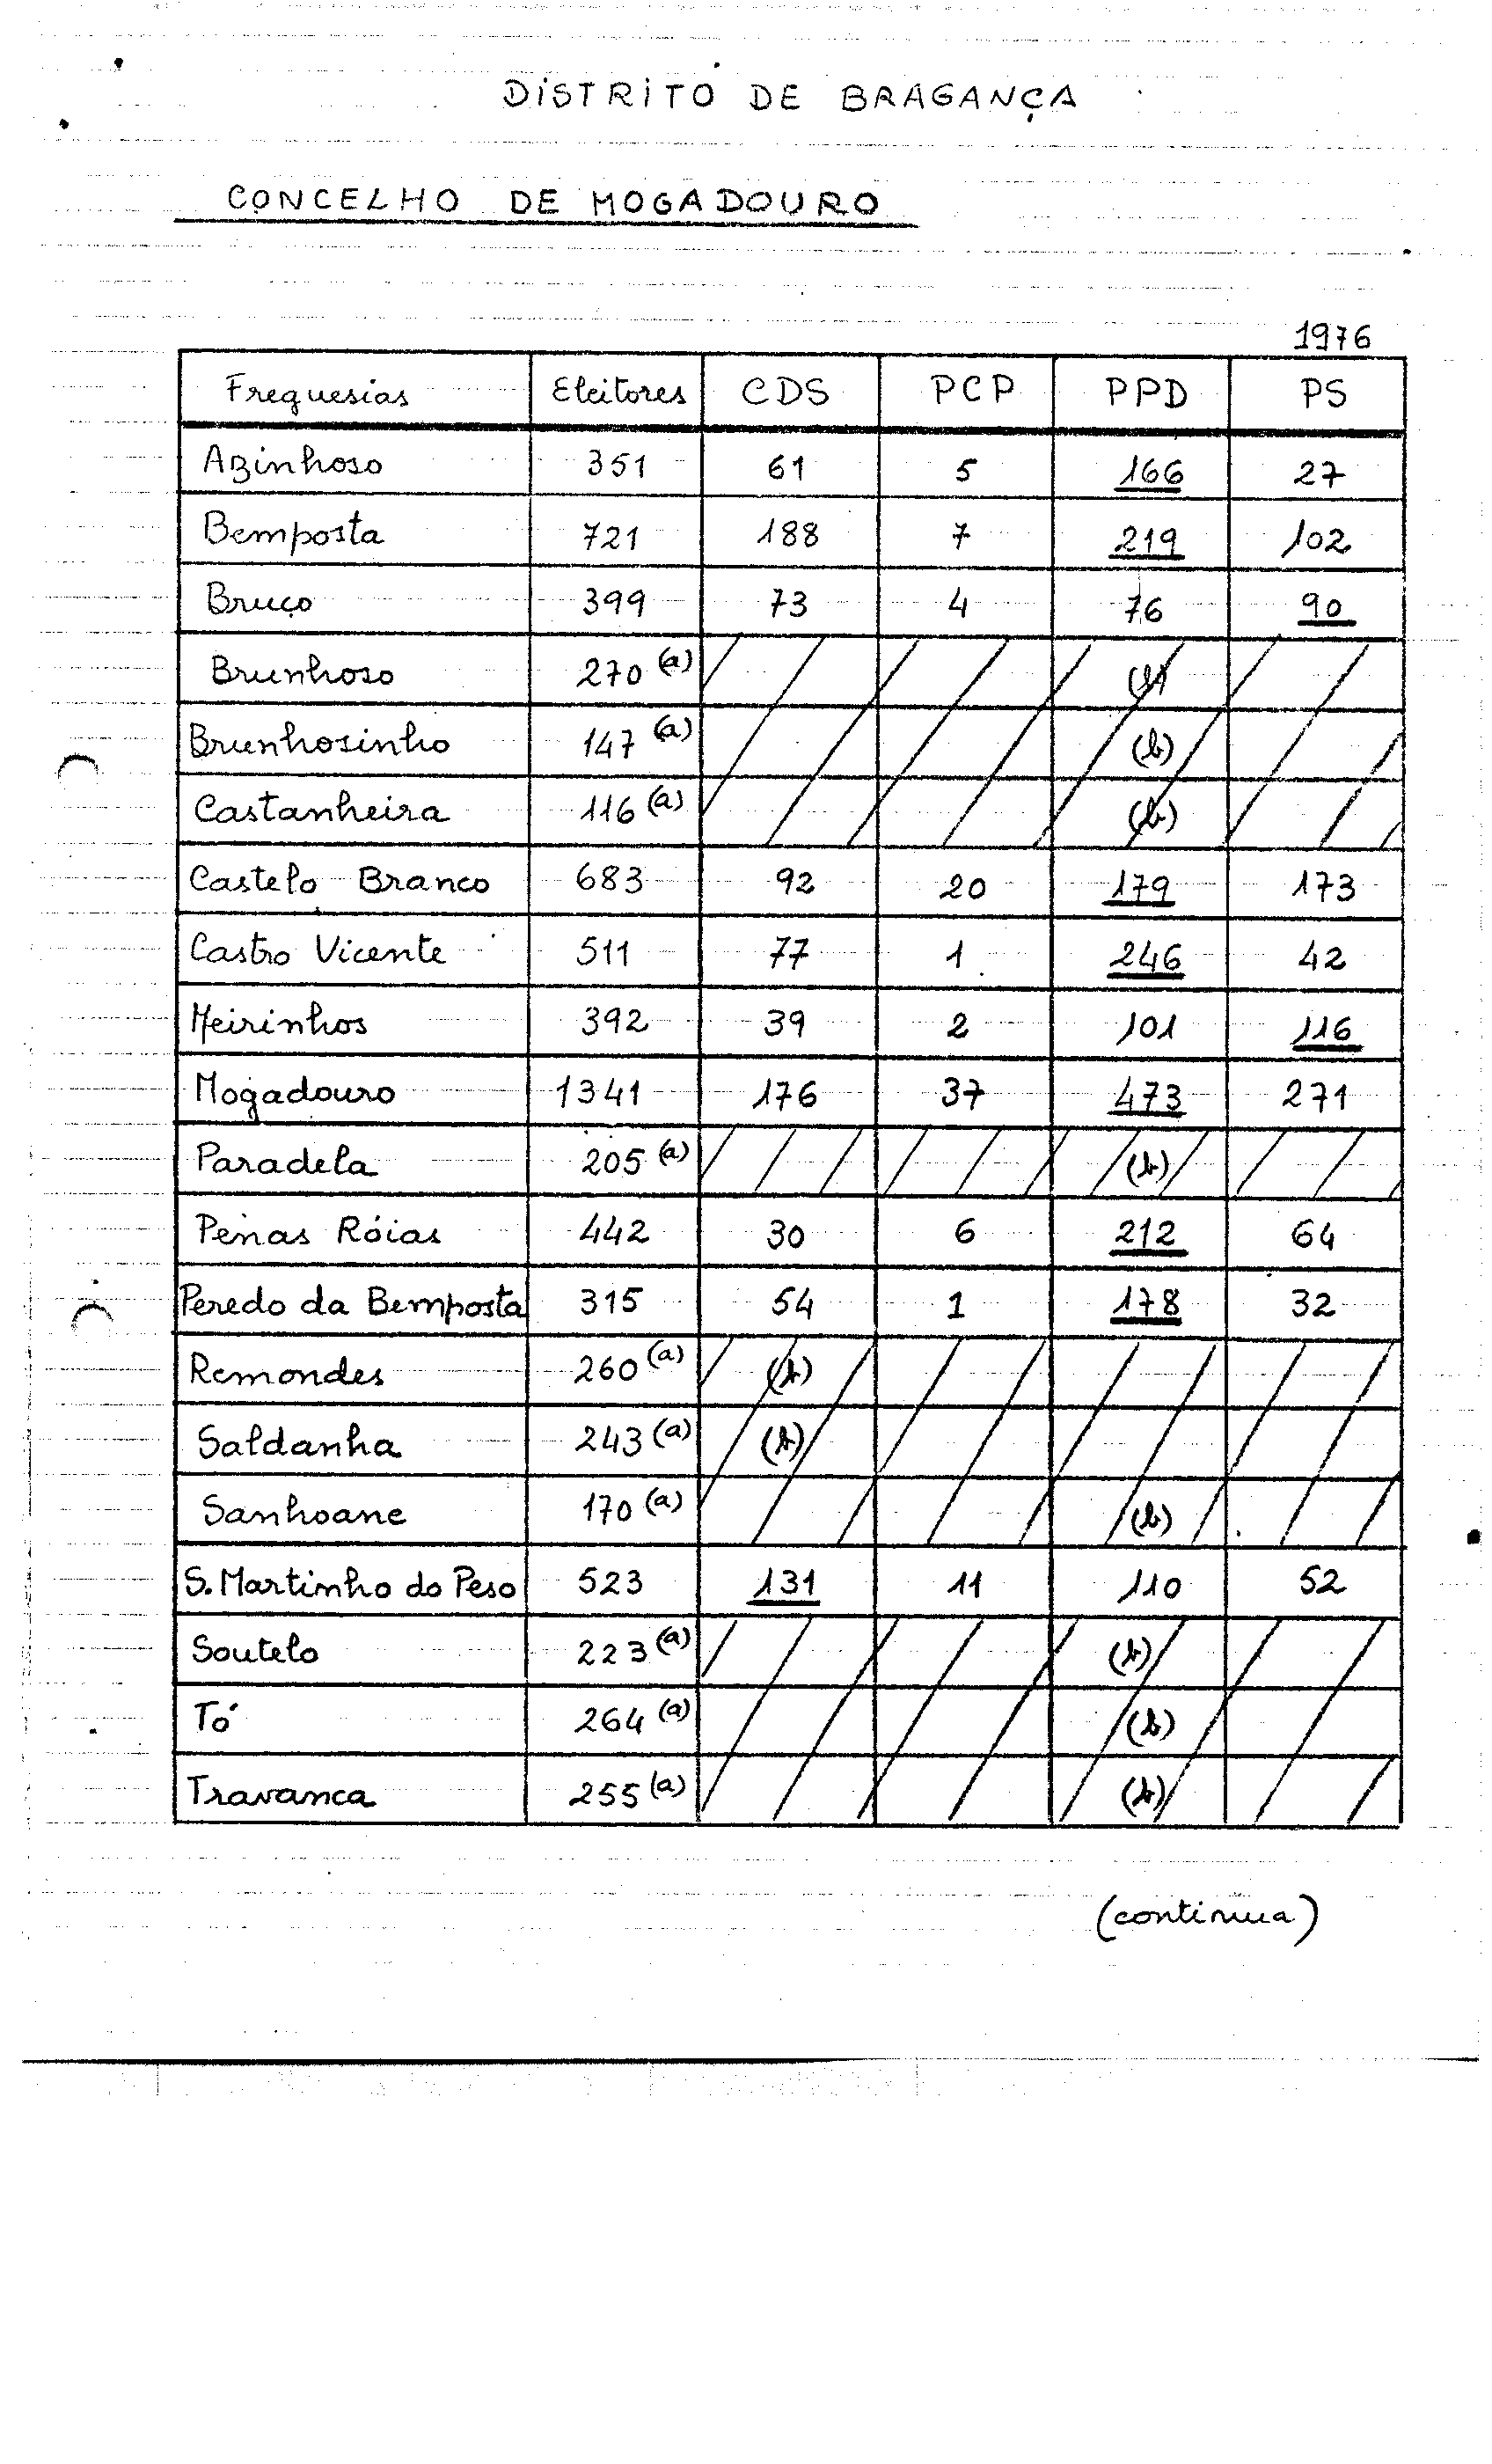 DISTRITO DE BRAGANÇA
CONCELHO DE MOGADOURO
1976
Freguesias Eleitores CDS PCP PPD PS
Azinhoso 351 61 5 166 27
Bemposta 721 188 7 219 102
Bruço 399 73 4 76 90
Brunhoso 270 (a) (b)
Brunhosinho 147 (a) (b)
Castanheira 116 (a) (b)
Castelo Branco 683 92 20 179 173
Castro Vicente 511 77 1 246 42
Meirinhos 392 39 2 101 116
Mogadouro 1341 176 37 473 271
Paradela 205 (a) (b)
Penas Róias 442 30 6 212 64
Peredo da Bemposta 315 54 1 178 32
Remondes 260 (a) (b)
Saldanha 243 (a) (b)
Sanhoane 170 (a) (b)
S. Martinho do Peso 523 131 11 110 52
Soutelo 223 (a) (b)
Tó 264 (a) (b)
Travanca 255 (a) (b)
(continua)